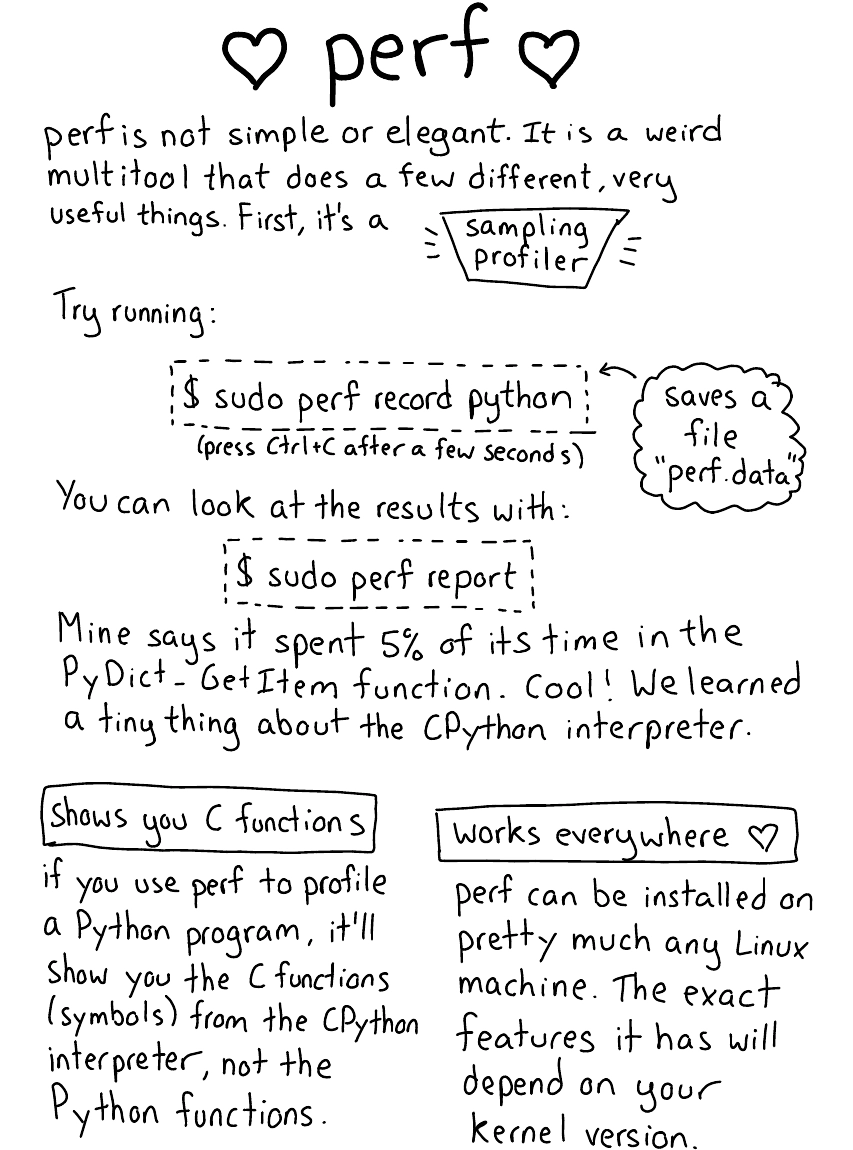 ♡ perf ♡
perf is not simple or elegant. It is a weird
multitool that does a few different, very
useful things. First, it's a
sampling
profiler
Try running:
$ sudo perf record python
(press Ctrl+C after a few seconds)
saves a
file
"perf.data"
You can look at the results with:
$ sudo perf report
Mine says it spent 5% of its time in the
PyDict_GetItem function. Cool! We learned
a tiny thing about the CPython interpreter.
shows you C functions
if you use perf to profile
a Python program, it'll
show you the C functions
(symbols) from the CPython
interpreter, not the
Python functions.
works everywhere ♡
perf can be installed on
pretty much any Linux
machine. The exact
features it has will
depend on your
kernel version.